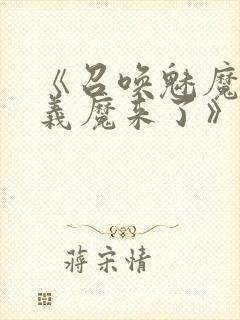 《召唤魅魔
義魔来了》
蒋宋情